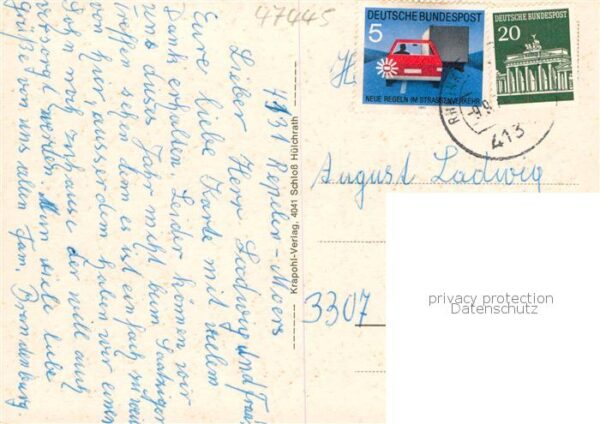 47445
4131 Repelen-Moers
Lieber Herr Ladwig und Frau
Eure liebe Karte mit vielem
Dank erhalten. Leider können wir
uns dieses Jahr nicht beim Saatziger
treffen sehen denn es ist einfach zu weit
von hier, ausserdem haben wir einen
Sohn mit zuhause der will auch
versorgt werden. Nun viele liebe
Grüße von uns allen Fam. Brandenburg.
Krapohl-Verlag, 4041 Schloß Hülchrath
5 DEUTSCHE BUNDESPOST
NEUE REGELN IM STRASSENVERKEHR
DEUTSCHE BUNDESPOST
20
413
August Ladwig
3307
privacy protection
Datenschutz